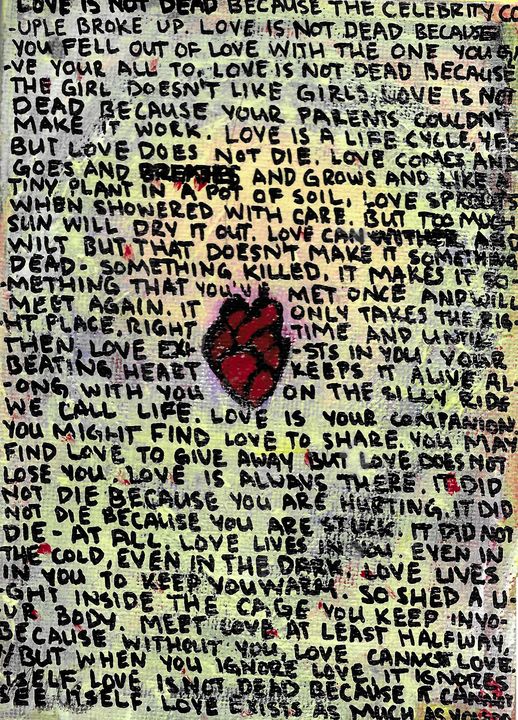 LOVE IS NOT DEAD BECAUSE THE CELEBRITY CO
-UPLE BROKE UP. LOVE IS NOT DEAD BECAUSE
YOU FELL OUT OF LOVE WITH THE ONE YOU GA
-VE YOUR ALL TO. LOVE IS NOT DEAD BECAUSE
THE GIRL DOESN'T LIKE GIRLS. LOVE IS NOT
DEAD BECAUSE YOUR PARENTS COULDN'T
MAKE IT WORK. LOVE IS A LIFE CYCLE, YES
BUT LOVE DOES NOT DIE. LOVE COMES AND
GOES AND BREATHES AND GROWS AND LIKE A
TINY PLANT IN A POT OF SOIL, LOVE SPROUTS
WHEN SHOWERED WITH CARE. BUT TOO MUCH
SUN WILL DRY IT OUT. LOVE CAN WITHER AND
WILT BUT THAT DOESN'T MAKE IT SOMETHING
DEAD. SOMETHING KILLED. IT MAKES IT SO
-METHING THAT YOU'VE MET ONCE AND WILL
MEET AGAIN. IT ONLY TAKES THE RIG-
HT PLACE, RIGHT TIME AND UNTIL
THEN, LOVE EXI- -STS IN YOU. YOUR
BEATING HEART KEEPS IT ALIVE AL-
-ONG WITH YOU ON THE SILLY RIDE
WE CALL LIFE. LOVE IS YOUR COMPANION.
YOU MIGHT FIND LOVE TO SHARE. YOU MAY
FIND LOVE TO GIVE AWAY BUT LOVE DOES NOT
LOSE YOU. LOVE IS ALWAYS THERE. IT DID
NOT DIE BECAUSE YOU ARE HURTING. IT DID
NOT DIE BECAUSE YOU ARE STUCK. IT DID NOT
DIE - AT ALL. LOVE LIVES IN YOU EVEN IN
THE COLD, EVEN IN THE DARK. LOVE LIVES
IN YOU TO KEEP YOU WARM. SO SHED A LI-
GHT INSIDE THE CAGE YOU KEEP IN YO-
UR BODY. MEET LOVE AT LEAST HALFWAY,
BECAUSE WITHOUT YOU, LOVE CANNOT LOVE.
BUT WHEN YOU IGNORE LOVE, IT IGNORES
ITSELF. LOVE IS NOT DEAD BECAUSE IT CANNOT
SEE ITSELF. LOVE EXISTS AS MUCH AS